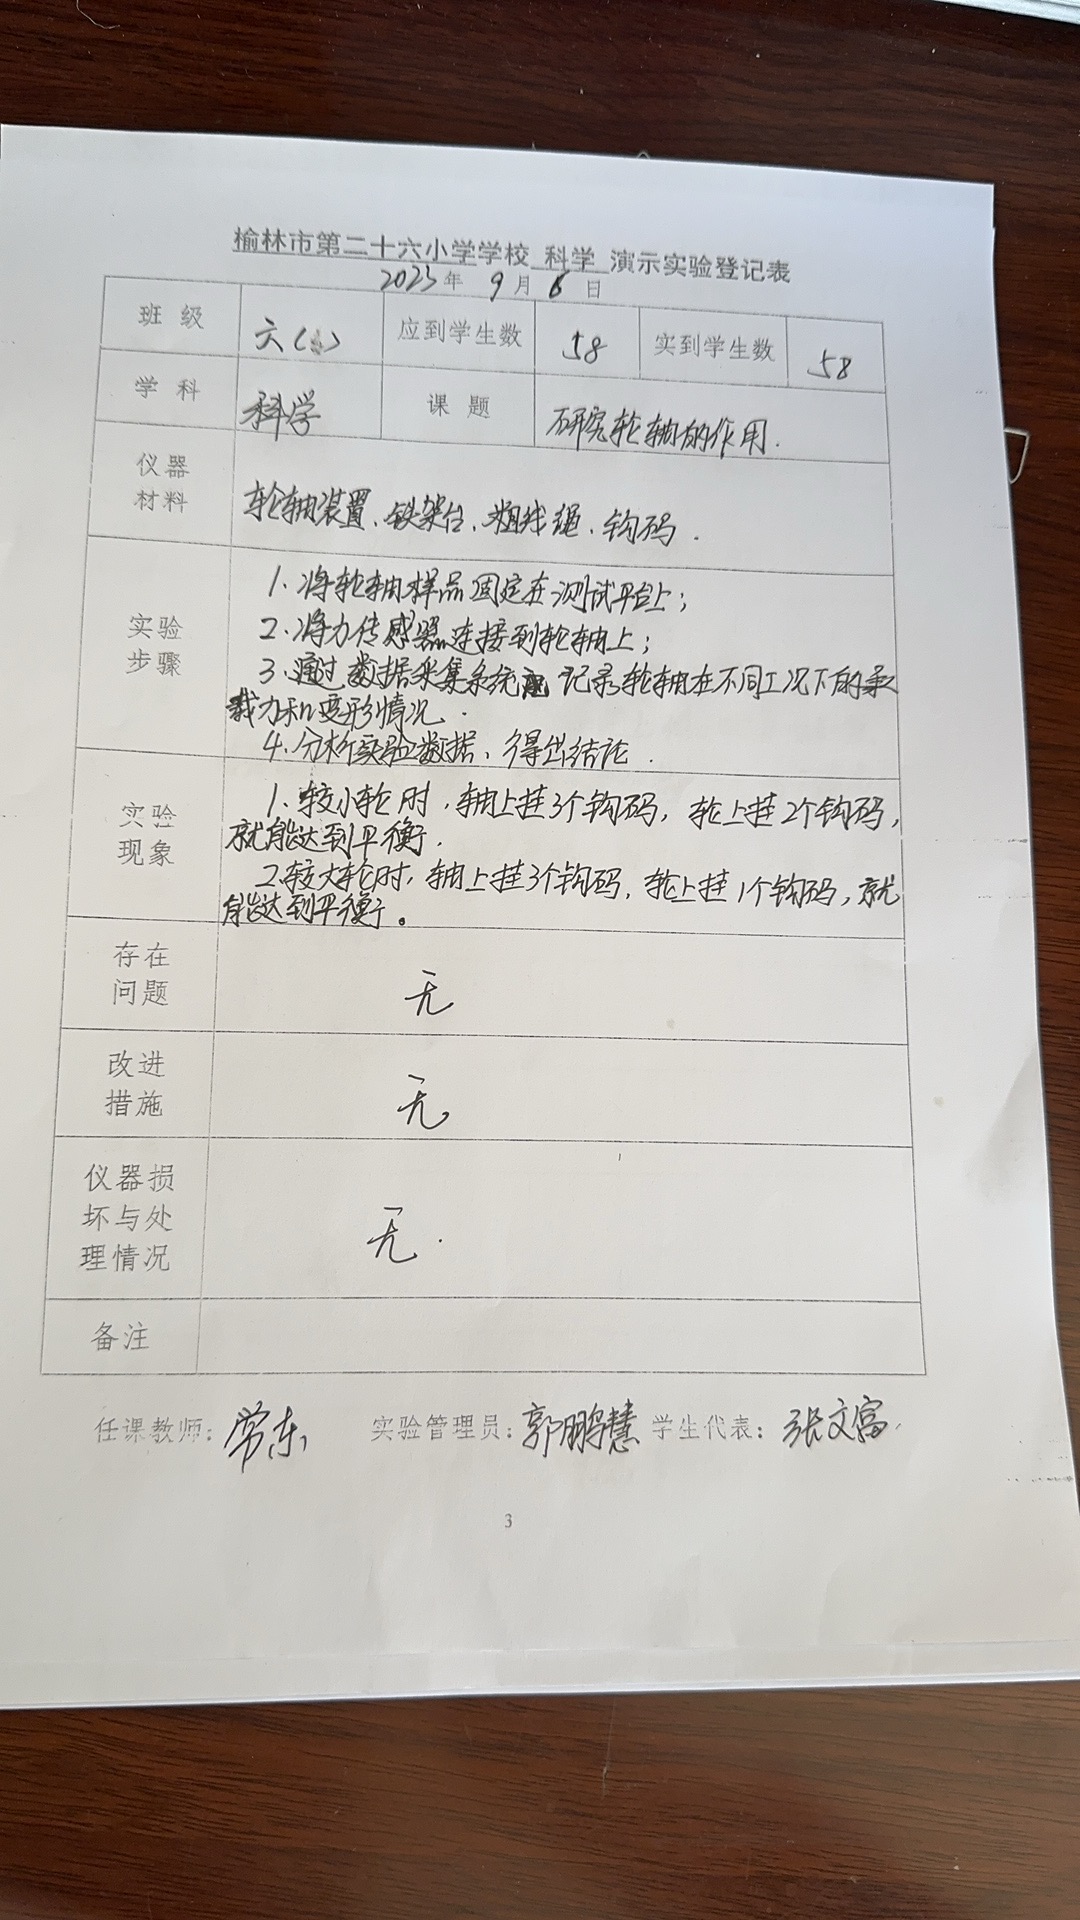 榆林市第二十六小学学校 科学 演示实验登记表
2023年 9月 6日
班 级 六( ) 应到学生数 58 实到学生数 58
学 科 科学 课 题 研究轮轴的作用.
仪器
材料
轮轴装置、铁架台、粗线绳、钩码.
实验
步骤
1.将轮轴样品固定在测试平台上;
2.将力传感器连接到轮轴上;
3.通过数据采集系统 记录轮轴在不同工况下的承
载力和变形情况.
4.分析实验数据,得出结论.
实验
现象
1.较小轮时,轴上挂3个钩码,轮上挂2个钩码,
就能达到平衡.
2.较大轮时,轴上挂3个钩码,轮上挂1个钩码,就
能达到平衡。
存在
问题
无
改进
措施
无
仪器损
坏与处
理情况
无.
备注
任课教师: 常东 实验管理员: 郭鹏慧 学生代表: 张文富
3